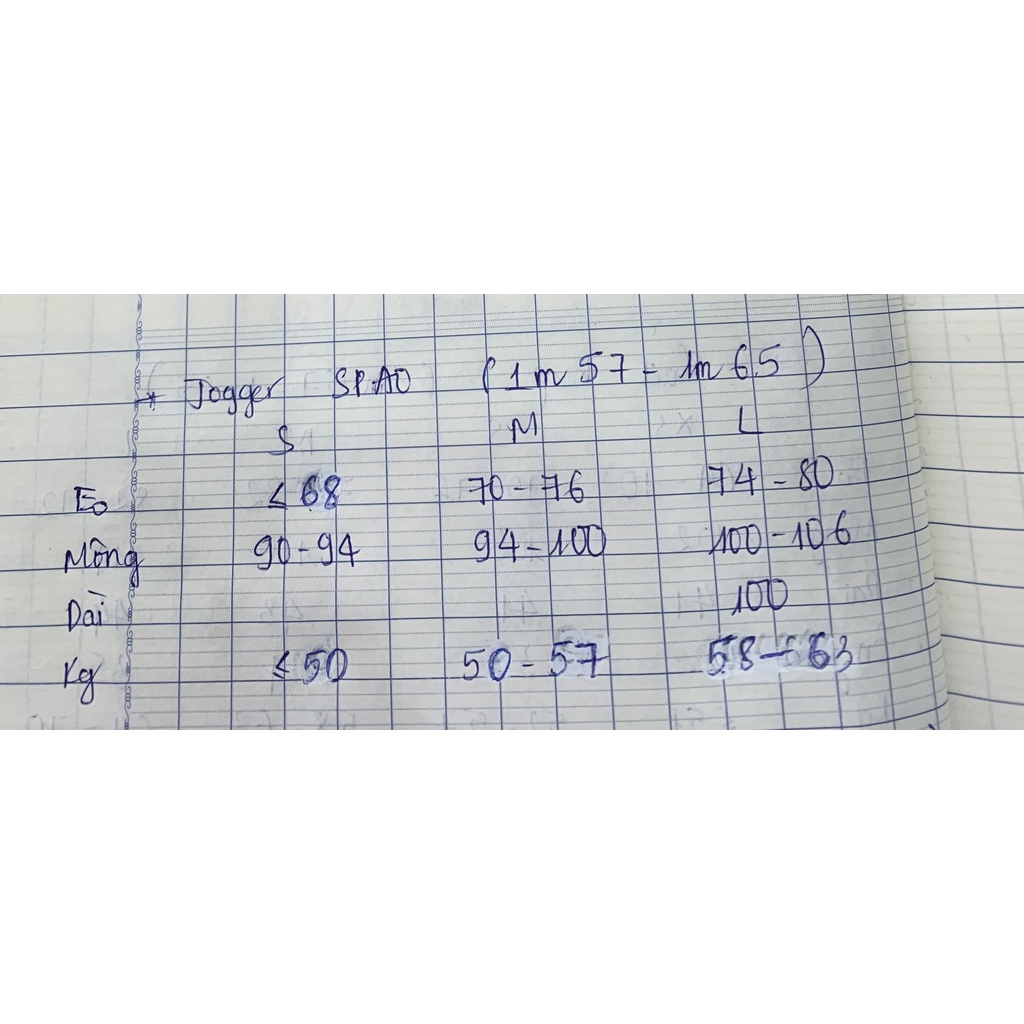 * Jogger SPAO (1m57 - 1m65)
S M L
Eo ≤ 68 70 - 76 74 - 80
Mông 90 - 94 94 - 100 100 - 106
Dài 100
Kg ≤ 50 50 - 57 58 - 63